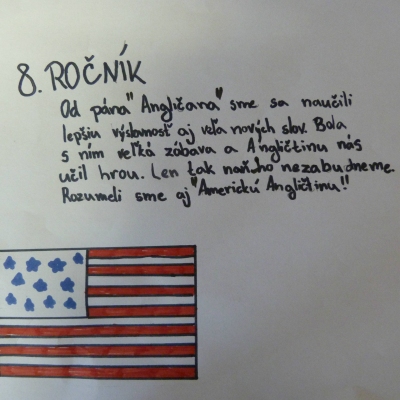 8. ROČNÍK
Od pána "Angličana" sme sa naučili
lepšiu výslovnosť aj veľa nových slov. Bola
s ním veľká zábava a Angličtinu nás
učil hrou. Len tak naňho nezabudneme.
Rozumeli sme aj "Americkú Angličtinu!"